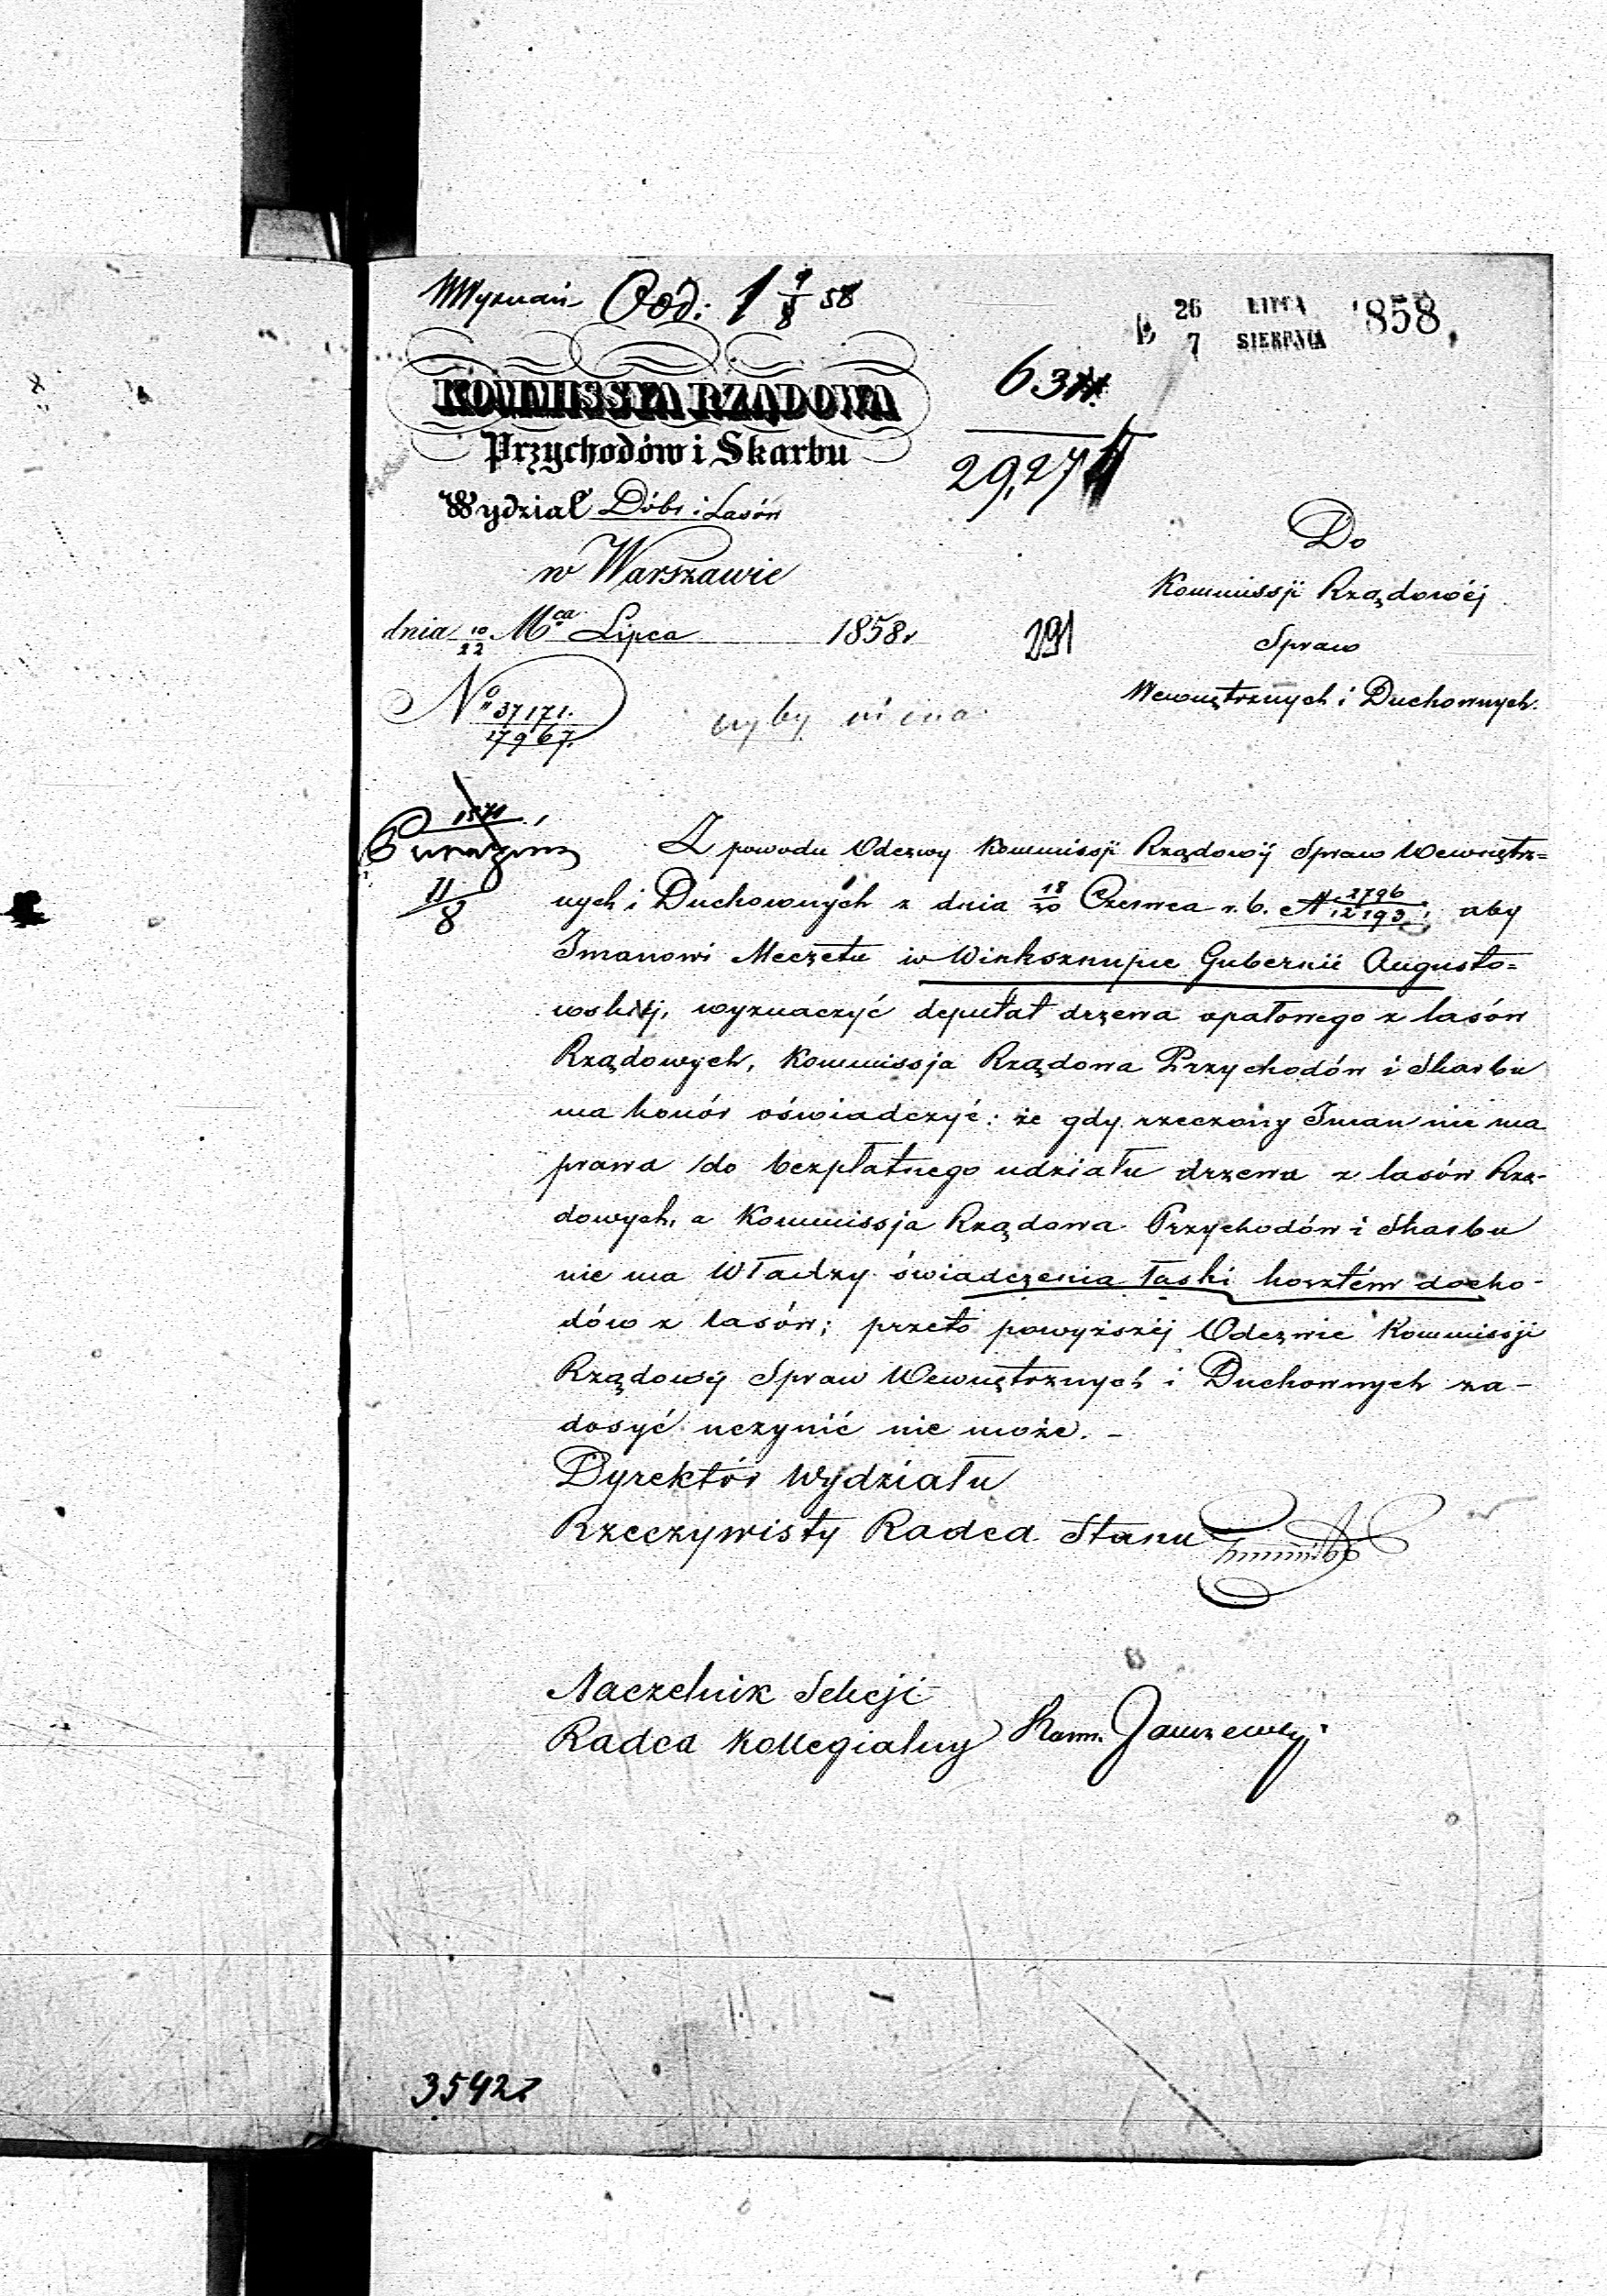 Wyznań Odd: 1 9/8 58
26 LIPCA 1858
7 SIERPNIA
KOMMISSYA RZĄDOWA
Przychodów i Skarbu
29,27
Wydział Dóbr i Lasów
w Warszawie
dnia 10/22 Mca Lipca 1858 r
291
No 37171.
17967.
Do
Kommissji Rządowéj
Spraw
Wewnętrznych i Duchownych.
11/8
Z powodu Odezwy Kommissji Rządowéj Spraw Wewnętrz=
nych i Duchownych z dnia 18/30 Czerwca r. b. N 2796/12193, aby
Imanowi Meczetu w Winksznupie Gubernii Augusto=
wskiéj, wyznaczyć deputat drzewa opałowego z lasów
Rządowych, Kommissja Rządowa Przychodów i Skarbu
ma honór oświadczyć: że gdy rzeczony Iman nie ma
prawa do bezpłatnego udziału drzewa z lasów Rzą-
dowych, a Kommissja Rządowa Przychodów i Skarbu
nie ma Władzy świadczenia łaski kosztém docho-
dów z lasów; przeto powyższéj Odezwie Kommissji
Rządowéj Spraw Wewnętrznych i Duchownych za-
dosyć uczynić nie może. -
Dyrektór Wydziału
Rzeczywisty Radca Stanu
Naczelnik Sekcji
Radca Kollegialny
35427